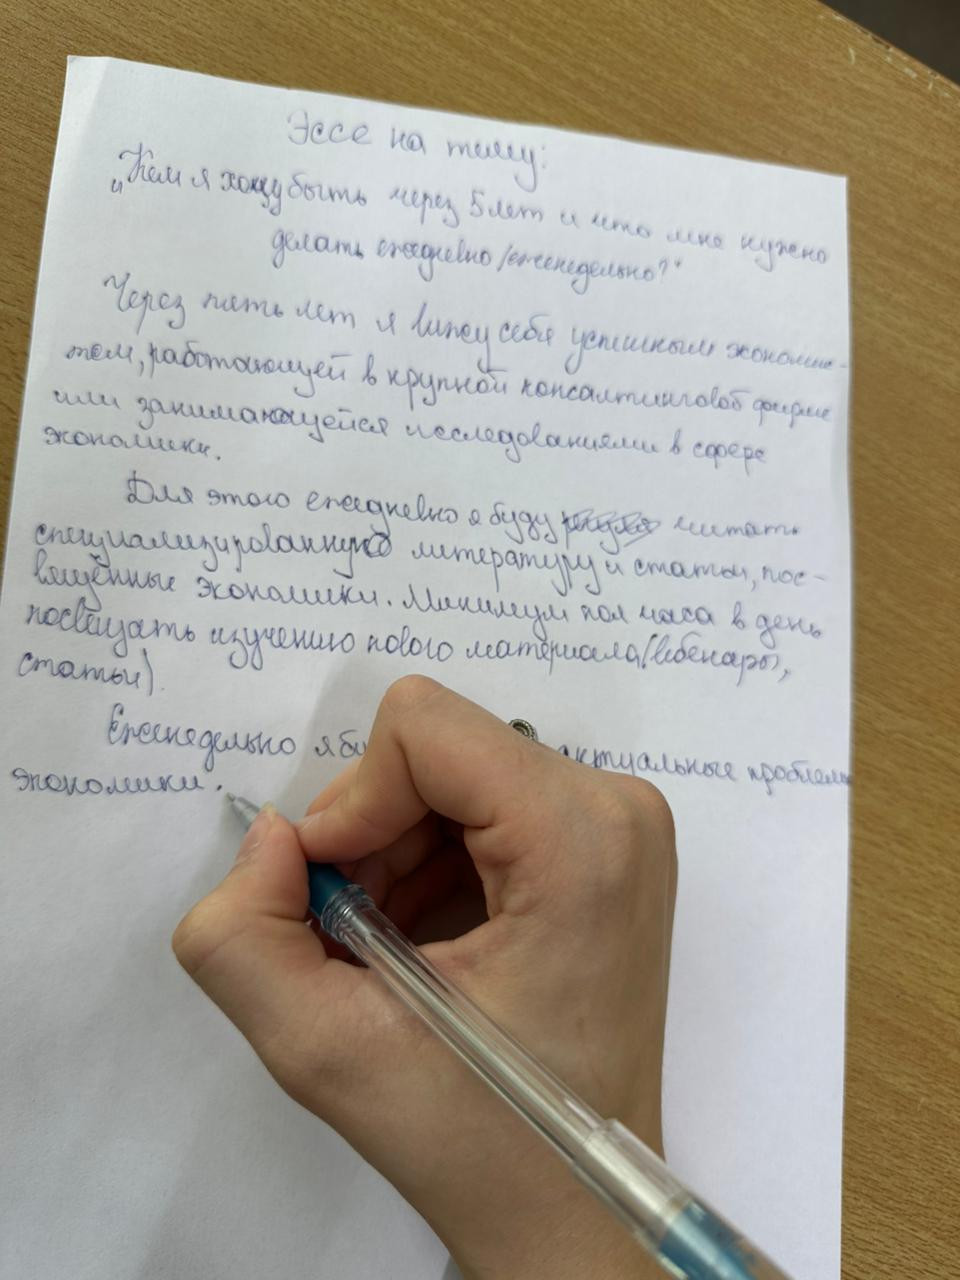 Эссе на тему:
„Кем я хочу быть через 5 лет и что мне нужно
делать ежедневно/еженедельно?"
Через пять лет я вижу себя успешным экономис-
том, работающей в крупной консалтинговой фирме
или занимающейся исследованиями в сфере
экономики.
Для этого ежедневно я буду читать
специализированную литературу и статьи, пос-
вящённые экономики. Минимум пол часа в день
посвещать изучению нового материала (вебенары,
статьи).
Еженедельно я актуальные проблемы
экономики.